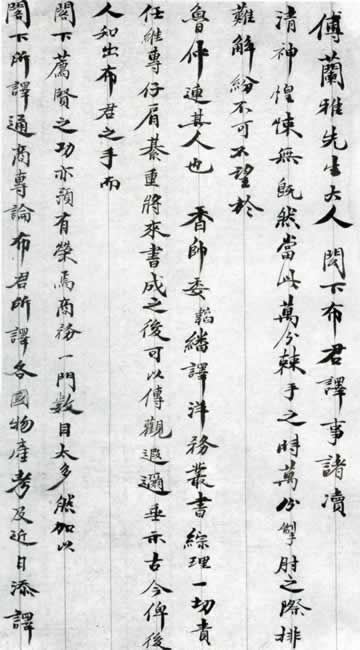 傅蘭雅先生大人 閣下布君譯事諸瀆
清神惶悚無既然當此萬分棘手之時萬分掣肘之際排
難解紛不可不望於
魯仲連其人也 香帥委韜繙譯洋務叢書綜理一切責
任維專仔肩綦重將來書成之後可以傳觀遐邇垂示古今俾後
人知出布君之手而
閣下薦賢之功亦預有榮焉商務一門數目太多然加以
閣下所譯通商專論布君所譯各國物產考及近日添譯